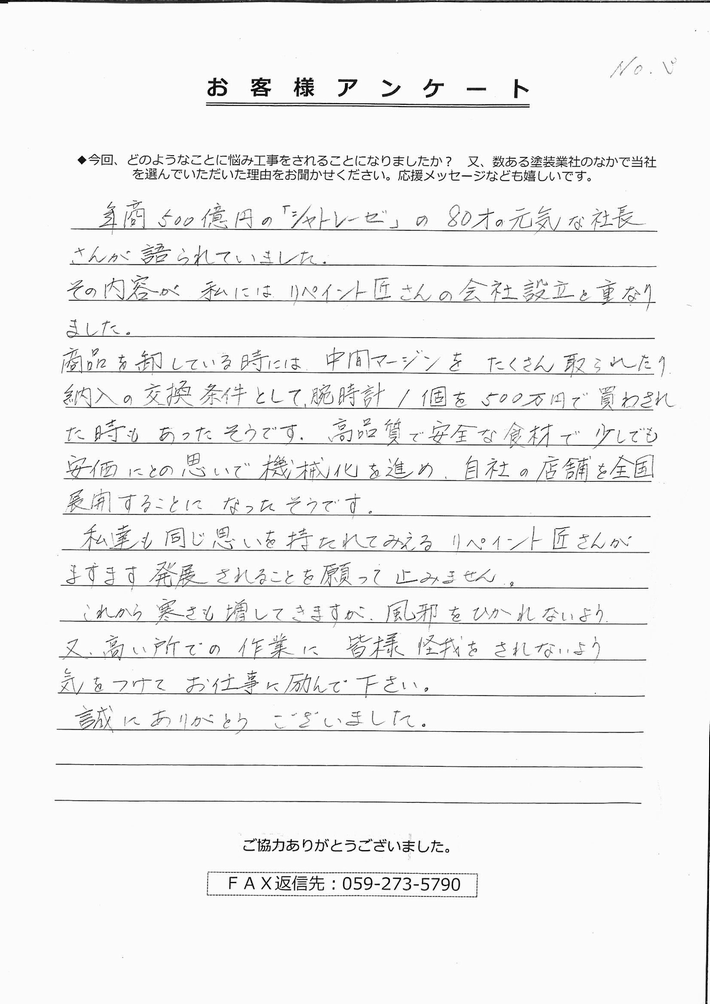 No.
お客様アンケート
◆今回、どのようなことに悩み工事をされることになりましたか？ 又、数ある塗装業社のなかで当社
を選んでいただいた理由をお聞かせください。応援メッセージなども嬉しいです。
年商500億円の「シャトレーゼ」の80才の元気な社長
さんが語られていました.
その内容が 私には リペイント匠さんの会社設立と重なり
ました。
商品を卸している時には 中間マージンを たくさん取られたり
納入の交換条件として、腕時計1個を500万円で買わされ
た時も あったそうです. 高品質で安全な食材で少しでも
安価にとの思いで機械化を進め、自社の店舗を全国
展開することに なったそうです。
私達も同じ思いを持たれてみえる リペイント匠さんが
ますます発展されることを願って止みません。
これから寒さも増してきますが、風邪をひかれないよう
又、高い所での作業に 皆様 怪我をされないよう
気をつけて お仕事に励んで下さい。
誠にありがとう ございました。
ご協力ありがとうございました。
ＦＡＸ返信先：059-273-5790